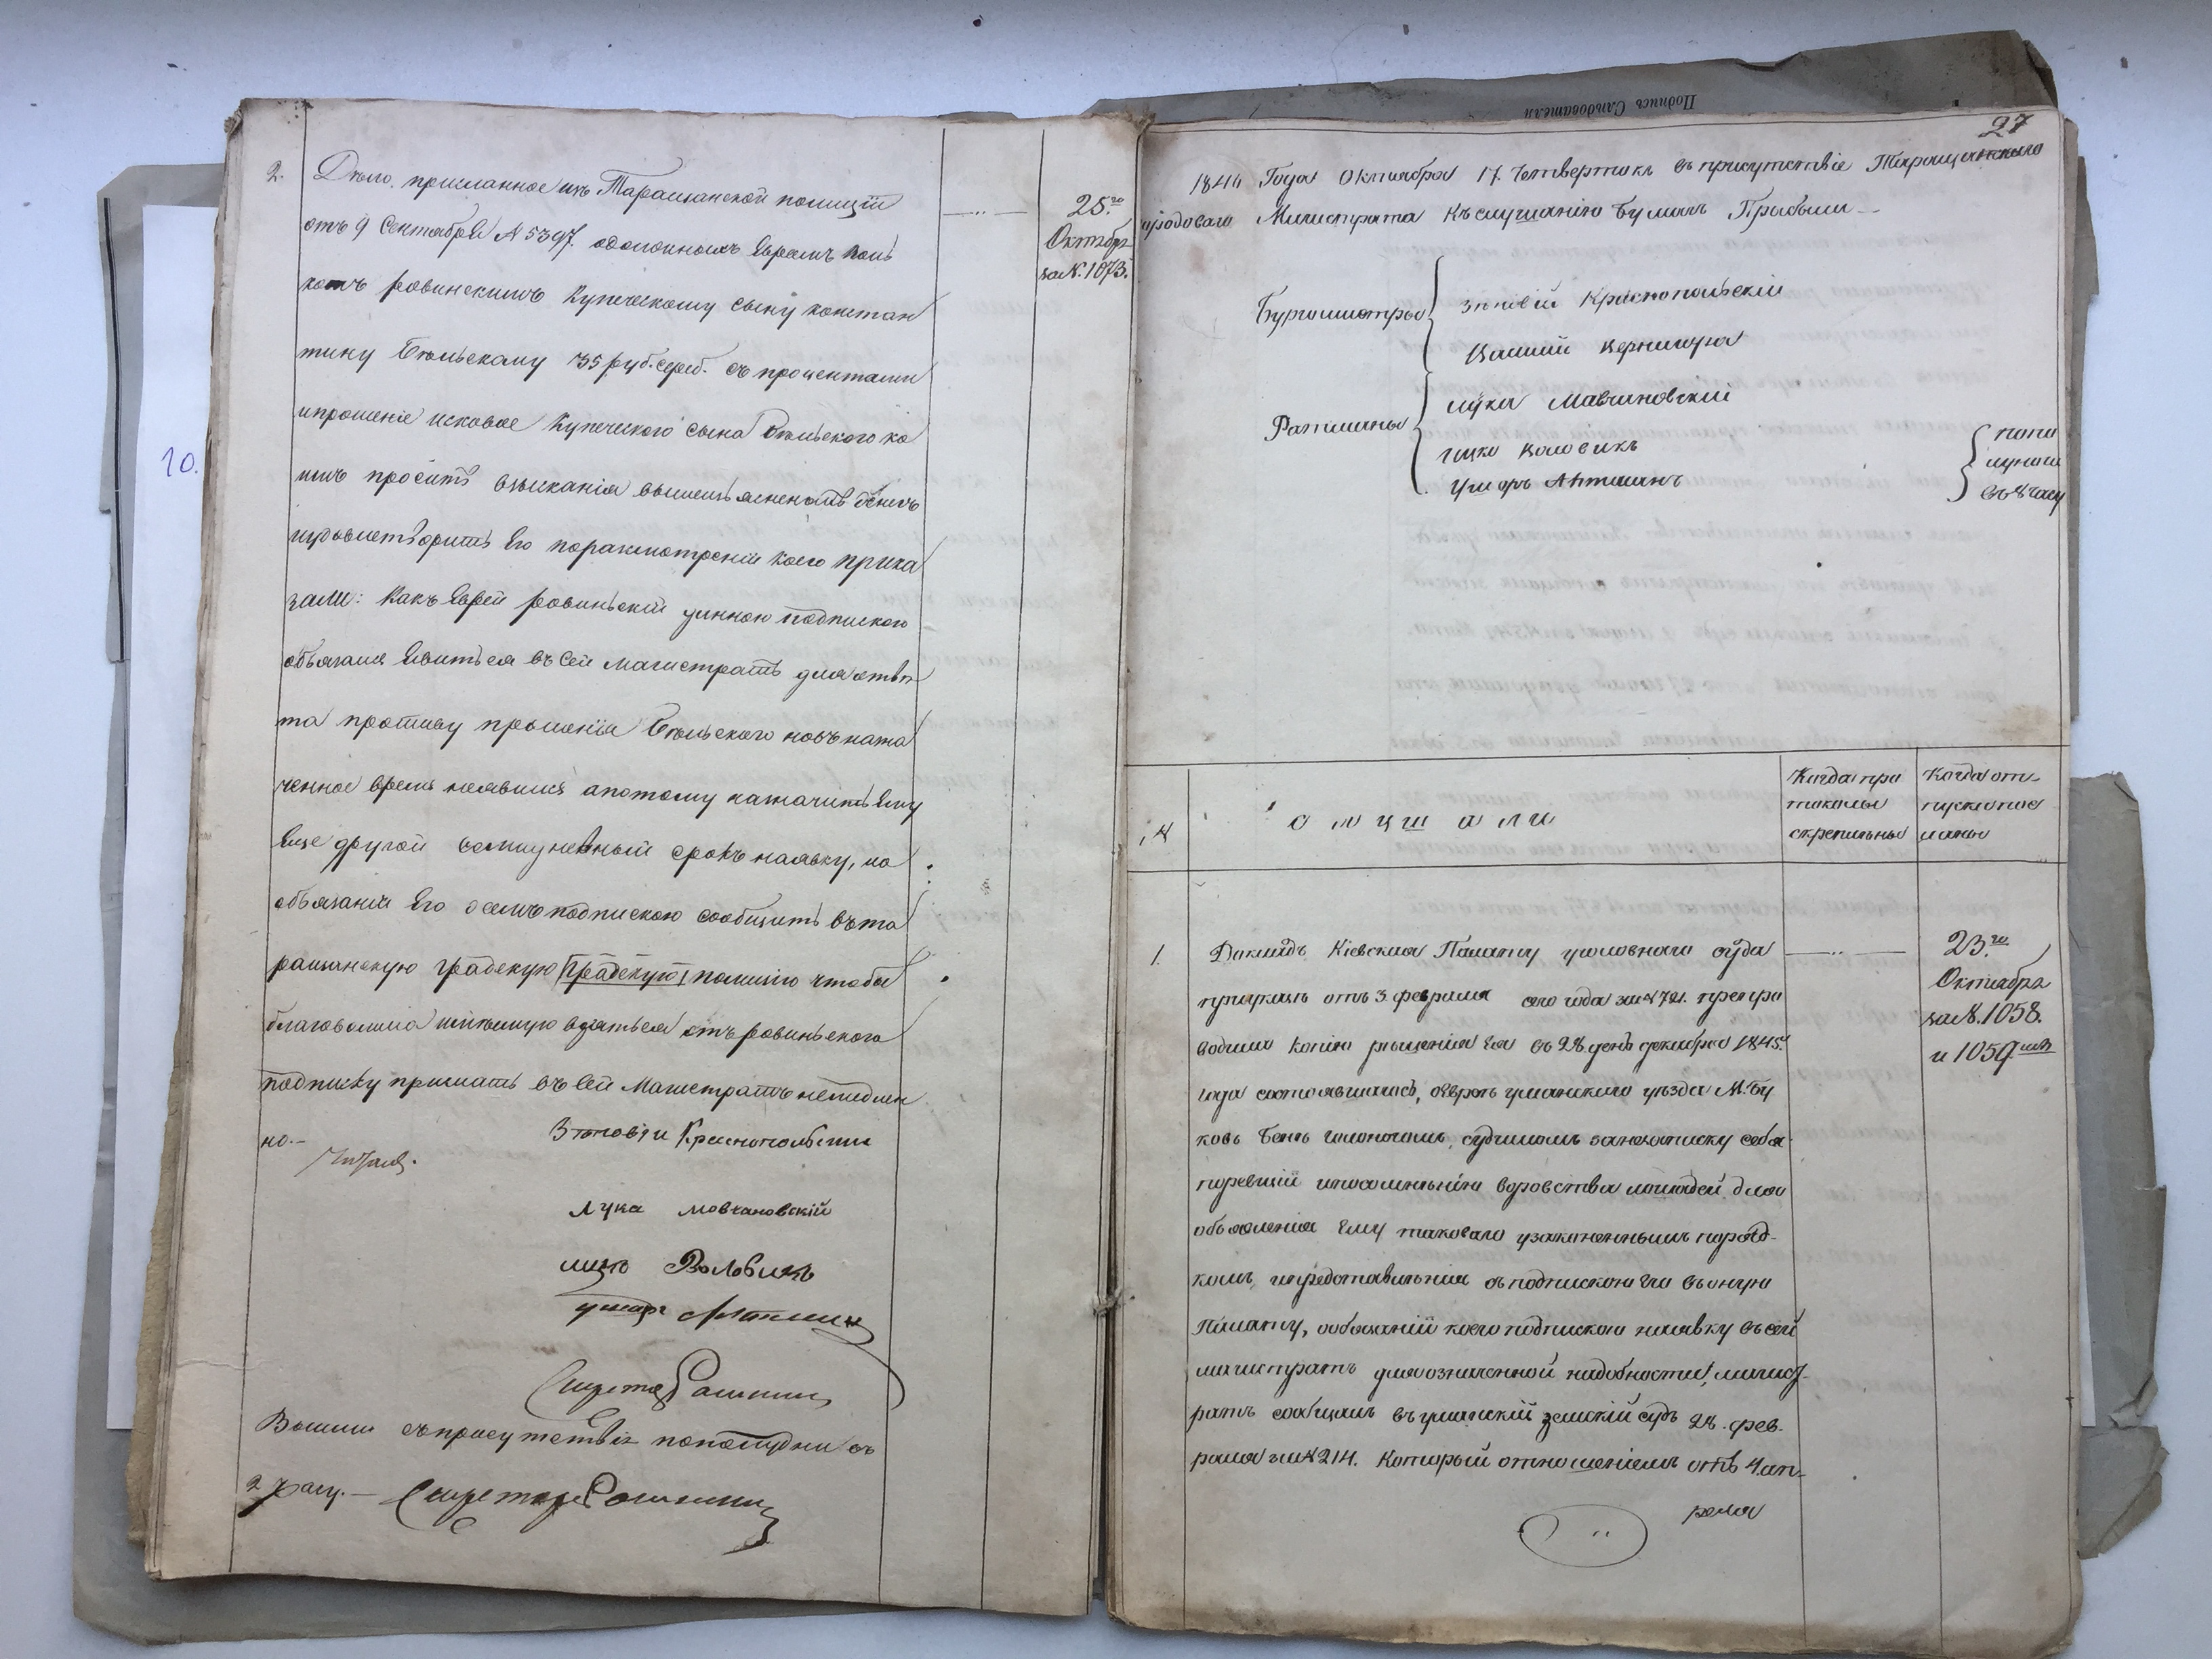 2. Дело присланное изъ Таращанской полиціи
отъ 9 Сентября № 5397. одолжныхъ Евреемъ
ровинскимъ Купеческому сыну констан
тину Бѣльскому 35 руб. сереб. съ процентами
ипрошеніе исковое Купеческого сына Бѣльского ко
имъ проситъ взысканія
иудовлетворить Его поразсмотреніи коего прика
зали: Какъ Еврей ровинскій данною подпискою
обязался Явиться въ Сей Магистратъ для отвѣ
та противу прошенія Бѣльского новъ назна
ченное время неявился апотому назначить Ему
Еще другой семидневный срокъ наявку, по
обязаніи Его осемъ подпискою сообщить въ та
ращанскую градскую (градскую) полицію чтобы
благоволила отъ ровинского
подписку прислать въ Сей Магистратъ немедлен
но.-
Читалъ.
Зѣновій Краснопольскій
Лука Мовчановскій
Воловикъ
Ушеръ
Секретарь
Вышли съприсутствія пополудни въ
2 часу. — Секретарь
10.
25.го
Октября
за №. 1073.
Подпись Слѣдователя
27
1846 Года Октября 17. Четвертокъ въ присутствіе Таращанского
городового Магистрата къ слушанію бумагъ Прибыли —
Бургомистры
Зѣновій Краснопольскій
Ратманы
Лука Мавчановскій
Ицко Воловикъ
Ушеръ
попо
лудни
въ 8 часу
№
слушали
Когда про
токолы
скрепленны
Когда от-
пуски пос
ланы
1. Докладъ Кіевская Палата уголовнаго суда
приуказѣ отъ 3. февраля сего года за № 721. препро
водила копію рѣшенія Ея въ 28. день декабря 1845.
года состоявшагося, оЕвреѣ уманского уѣзда М. Бу
ковъ судимомъ занезаписку себя
поревизіи ипосомненію воровства лошадей для
объявленія Ему таковаго узаконеннымъ поряд-
комъ, ипредставленія съ подпискою Его въ оную
Палату, ообязаніи коего подпискою наявку въ сей
магистратъ для означенной надобности, магист-
ратъ сообщалъ въ уманскій земскій судъ 28. фев-
раля за № 214. Который отношеніемъ отъ 4. ап-
реля
23.го
Октября
за №. 1058.
и 1059